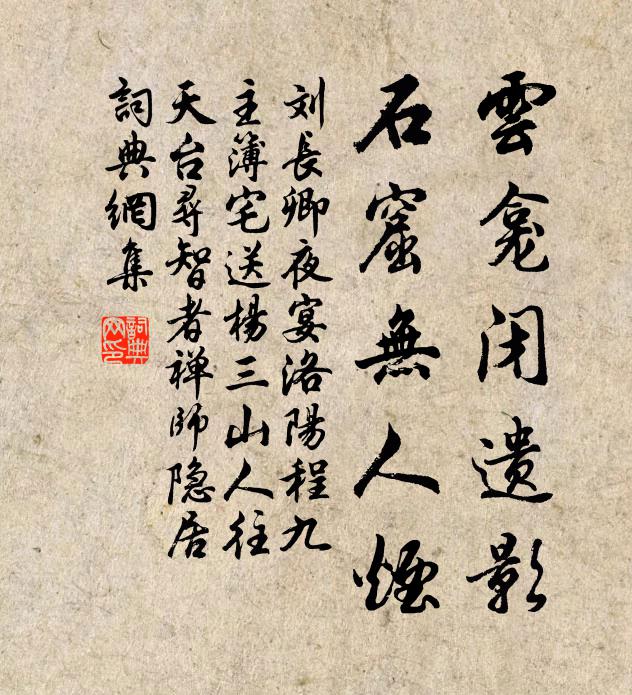 雲龛闭遗影
石窟無人煙
刘長卿夜宴洛陽程九
主簿宅送楊三山人往
天台尋智者禅師隐居
詞典網集
詞典網印